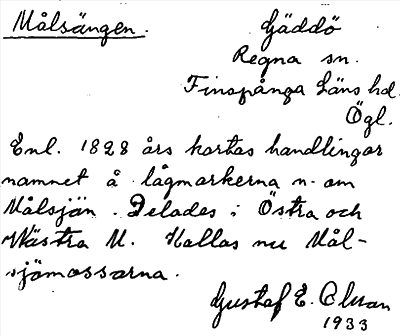 Målsängen.
Gäddö
Regna sn.
Finspånga Läns hd.
Ögl.
Enl. 1828 års kartas handlingar
namnet å lågmarkerna n. om
Målsjön. Delades i Östra och
Västra M. Kallas nu Mål-
sjömossarna.
Gustaf E. Olsson
1933